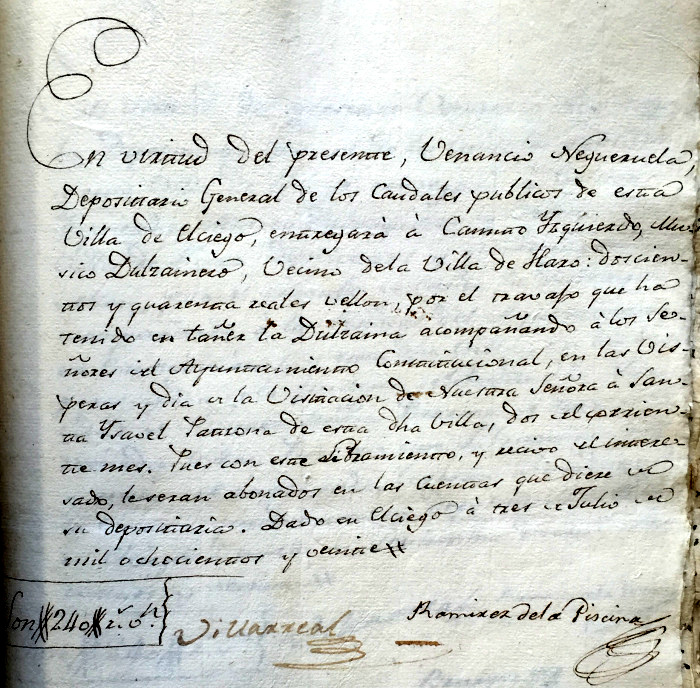 En virtud del presente, Venancio Negueruela,
Depositario General de los Caudales publicos de esta
Villa de Elciego, entregarà à Camino Yzquierdo, Mu-
sico Dulzainero, Vecino dela Villa de Haro: doscien-
tos y quarenta reales vellon, por el travajo que ha
tenido en tañer la Dulzaina acompañando à los Se-
ñores del Ayuntamiento Constitucional, en las Vis-
peras y dia de la Visitacion de Nuestra Señora à San-
ta Ysavel Patrona de esta dha Villa, dos del corrien-
te mes. Pues con este Libramiento, y recivo del intere-
sado, le seran abonados en las Cuentas que diere de
su depositaria. Dado en Elciego à tres de Julio de
mil ochocientos y veinte
Son 240 r.s v.n
Villarreal
Ramirez dela Piscina